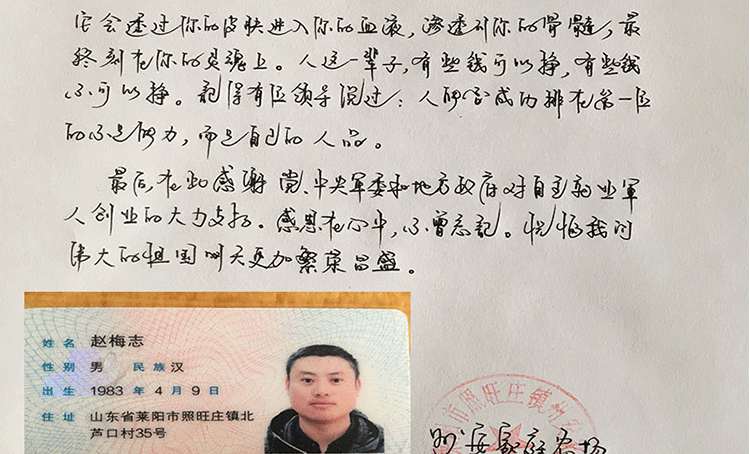 它会透过你的皮肤进入你的血液，渗透到你的骨髓，最
终刻在你的灵魂上。人这一辈子，有些钱可以挣，有些钱
不可以挣。记得有位领导说过：人的成功排在第一位
的不是能力，而是自己的人品。
最后，在此感谢党、中央军委和地方政府对自主就业军
人创业的大力支持。感恩在心中，不曾忘记。祝福我们
伟大的祖国明天更加繁荣昌盛。
姓名 赵梅志
性别 男 民族 汉
出生 1983 年 4 月 9 日
住址 山东省莱阳市照旺庄镇北
芦口村35号
市照旺庄镇
家庭农场